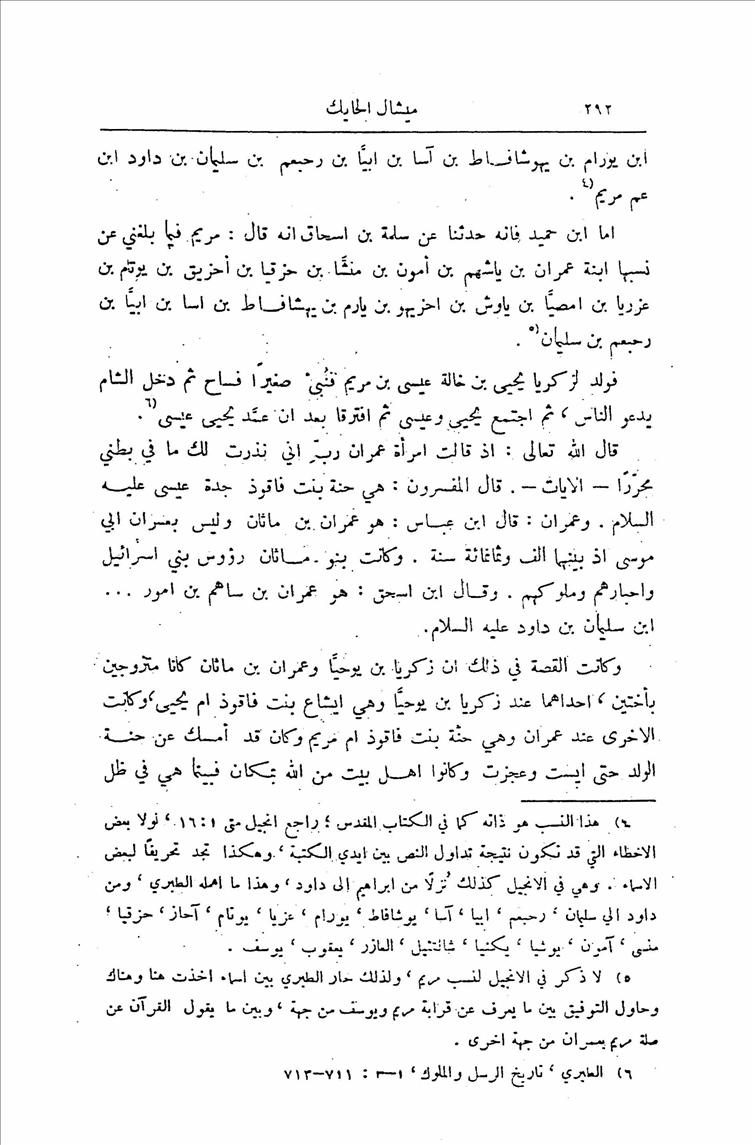 ٢٩٢ ميشال الحايك
ابن يورام بن يهوشافـاط بن آسا بن ابيَّا بن رحبعم بن سليمان بن داود ابن
عم مريم(٤ .
اما ابن حميد فانه حدثنا عن سلمة بن اسحاق انه قال : مريم فيما بلغني عن
نسبها ابنة عمران بن ياشهم بن أمون بن منشَّا بن حزقيا بن أحزيق بن يوثم بن
عزريا بن امصيَّا بن ياوش بن احزيهو بن يارم بن يهشافـاط بن اسا بن ابيَّا بن
رحبعم بن سليمان(٥ .
فولد لزكريا يحيى بن خالة عيسى بن مريم فنُبئ صغيرًا فساح ثم دخل الشام
يدعو الناس ، ثم اجتمع يحيى وعيسى ثم افترقا بعد ان عمَّد يحيى عيسى(٦.
قال الله تعالى : اذ قالت امرأة عمران ربِّ اني نذرت لك ما في بطني
محرّرًا — الايات —. قال المفسرون : هي حنة بنت فاقوذ جدة عيسى عليـه
السلام . وعمران : قال ابن عباس : هو عمران بن ماثان وليس بعمران ابي
موسى اذ بينهما الف وثمانمائة سنة . وكانت بنو مـاثان رؤوس بني اسرائيل
واحبارهم وملوكهم . وقـال ابن اسحق : هو عمران بن ساهم بن امور ...
ابن سليمان بن داود عليه السلام.
وكانت القصة في ذلك ان زكريا بن يوحيَّا وعمران بن ماثان كانا متزوجين
بأختين ، احداهما عند زكريا بن يوحيَّا وهي ايشاع بنت فاقوذ ام يحيى ، وكانت
الاخرى عند عمران وهي حنَّة بنت فاقوذ ام مريم وكان قد أمسك عن حنـة
الولد حتى ايست وعجزت وكانوا اهـل بيت من الله بمكان فبينما هي في ظل
٤) هذا النسب هو ذاته كما في الكتاب المقدس ؛ راجع انجيل متى ١ : ١٦ ، لولا بعض
الاخطاء التي قد تكون نتيجة تداول النص بين ايدي الكتبة ، وهكذا تجد تحريفًا لبعض
الاسماء . وهي في الانجيل كذلك نُزلًا من ابراهيم الى داود ، وهذا ما اهمله الطبري ، ومن
داود الى سليمان ، رحبعم ، ابيا ، آسا ، يوشافاط ، يورام ، عزيا ، يوثام ، آحاز ، حزقيا ،
منسى ، آمون ، يوشيا ، يكنيا ، شالتئيل ، العازر ، يعقوب ، يوسف .
٥) لا ذكر في الانجيل لنسب مريم ، ولذلك حار الطبري بين اسماء اخذت هنا وهناك
وحاول التوفيق بين ما يعرف عن قرابة مريم ويوسف من جهة ، وبين ما يقول القرآن عن
صلة مريم بعمران من جهة اخرى .
٦) الطبري ، تاريخ الرسل والملوك ، ١–٣ : ٧١١–٧١٣